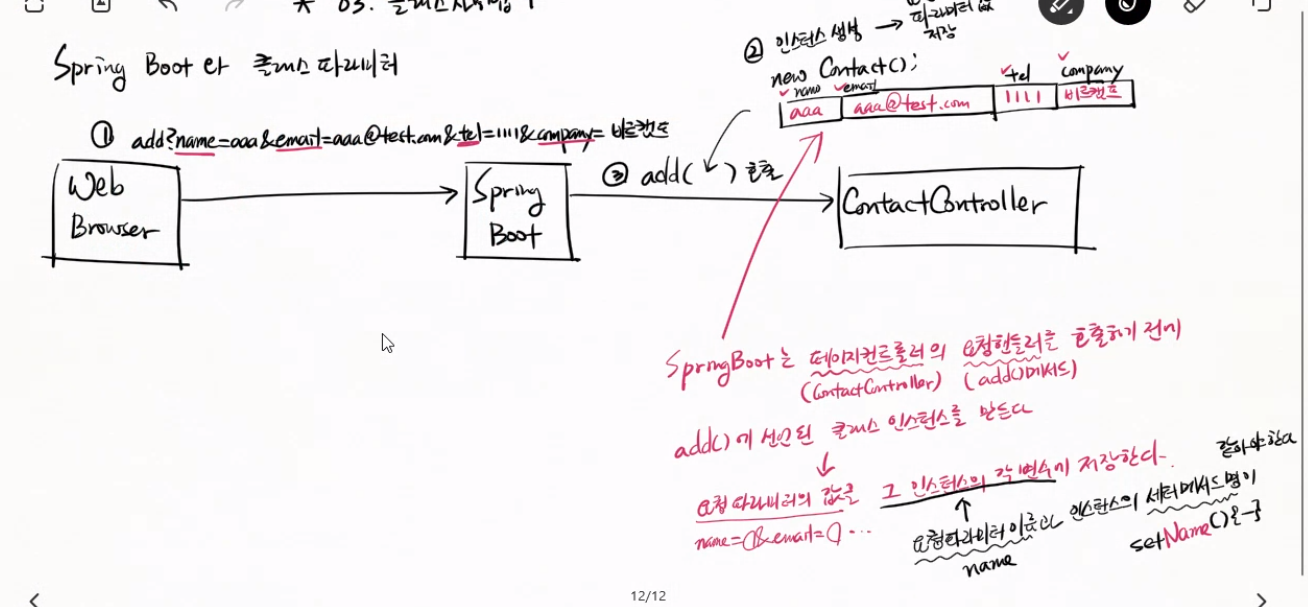 Spring Boot와 클래스 파라미터
② 인스턴스 생성 → 파라미터 값
저장
new Contact();
name email tel company
aaa aaa@test.com 1111 비트캠프
① add?name=aaa&email=aaa@test.com&tel=1111&company=비트캠프
Web
Browser
Spring
Boot
③ add( ) 호출
ContactController
SpringBoot는 페이지컨트롤러의 요청핸들러를 호출하기 전에
(ContactController) (add()메서드)
add()에 선언된 클래스 인스턴스를 만든다
요청 파라미터의 값을 그 인스턴스의 각 변수에 저장한다.
name=()&email=() ...
요청파라미터 이름과 인스턴스의 세터메서드명이 같아야 한다
name
setName(){-}
12/12